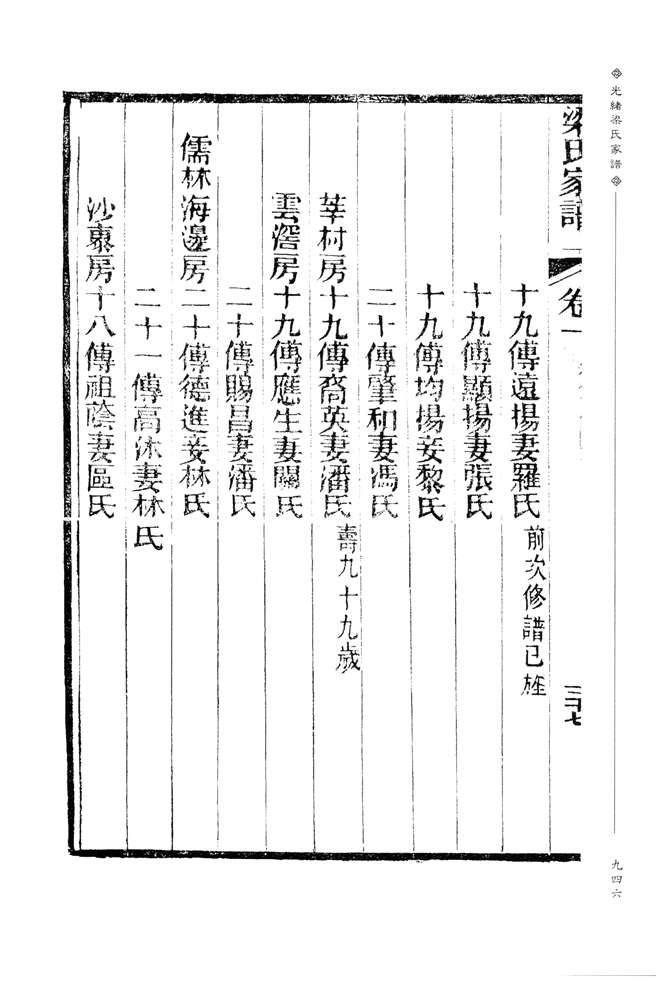 光緒梁氏家譜
梁氏家譜 卷一
三十七
十九傳遠揚妻羅氏 前次修譜已旌
十九傳顯揚妻張氏
十九傳均揚妾黎氏
二十傳肇和妻馮氏
莘村房十九傳裔英妻潘氏 壽九十九歲
雲滘房十九傳應生妻關氏
二十傳賜昌妻潘氏
儒林海邊房二十傳德進妾林氏
二十一傳高沐妻林氏
沙裏房十八傳祖蔭妻區氏
九四六